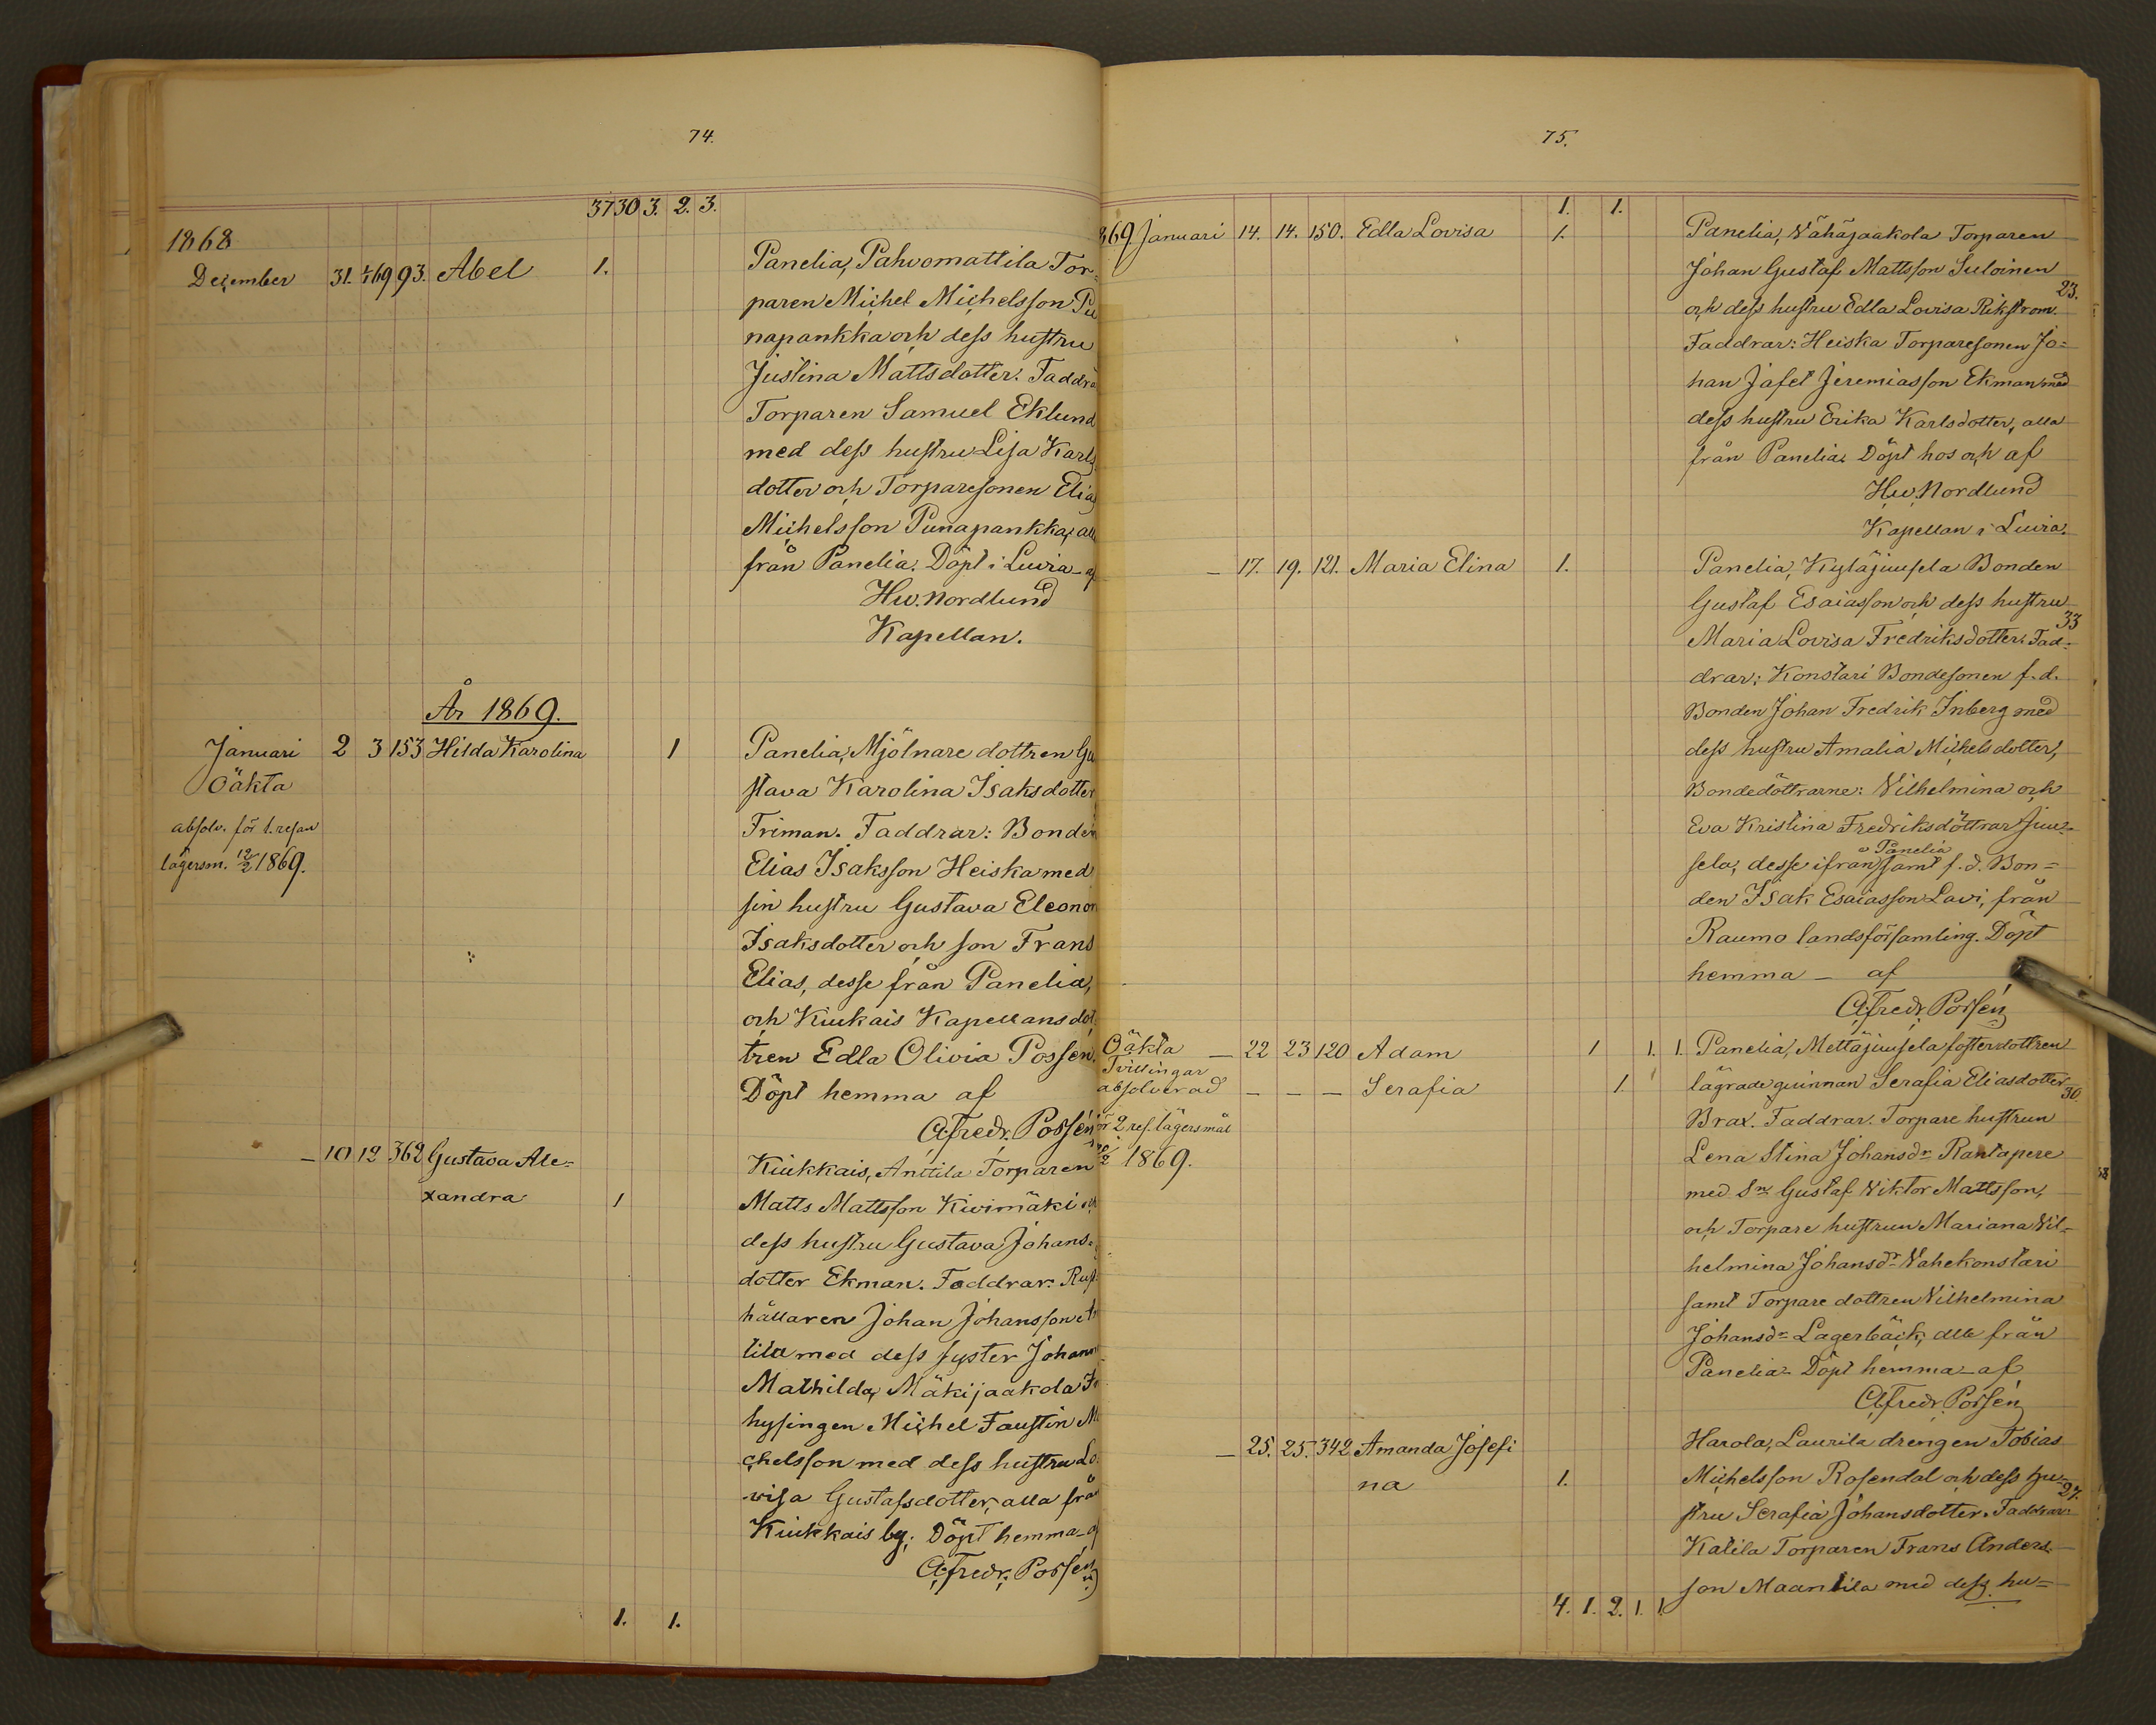 74.
37 30 3. 2. 3.
1868
December 31. 1/1 69 93. Abel 1. Panelia, Pahvomattila Tor-
paren Michel Michelsson Pu
napankka och dess hustru
Justina Mattsdotter. Faddra
Torparen Samuel Eklund
med dess hustru Lisa Karls
dotter och Torparesonen Elias
Michelsson Punapankka, all
från Panelia. Döpt i Luvia af
Hw. Nordlund
Kapellan.
År 1869.
Januari 2 3 153 Hilda Karolina 1 Panelia, Mjölnare dottren Gu
Oäkta stava Karolina Isaksdotter
absolv. för 1. resan Friman. Faddrar: Bonden
lägersm. 12/2 1869. Elias Isaksson Heiska med
sin hustru Gustava Eleonor
Isaksdotter och son Frans
Elias, desse från Panelia,
och Kiukais Kapellansdot
tren Edla Olivia Possén.
Döpt hemma af
A. Fredr. Possén
— 10 12 362 Gustava Ale= Kiukkais, Anttila Torparen
xandra 1 Matts Mattsson Kivimäki och
dess hustru Gustava Johans-
dotter Ekman. Faddrar: Rust
hållaren Johan Johansson An
tila med dess syster Johann
Mathilda, Mäkijaakola In
hysingen Michel Faustin Mi
chelsson med dess hustru Lo
visa Gustafsdotter, alla från
Kiukkais by. Döpt hemma af
A. Fredr. Possén
1. 1.
75.
1. 1.
869. Januari 14. 14. 150. Edla Lovisa 1. Panelia, Vähäjaakola Torparen
Johan Gustaf Mattsson Suloinen
23.
och dess hustru Edla Lovisa Rikström.
Faddrar: Heiska Torparesonen Jo=
han Jafet Jeremiasson Ekman med
dess hustru Erika Karlsdotter, alla
från Panelia. Döpt hos och af
Hw. Nordlund
Kapellan i Luvia.
— 17. 19. 121. Maria Elina 1. Panelia, Kyläjuusela Bonden
Gustaf Esaiasson och dess hustru
33
Maria Lovisa Fredriksdotter. Fad=
drar: Konstari Bondesonen f.d.
Bonden Johan Fredrik Inberg med
dess hustru Amalia Michelsdotter,
Bondedöttrarne: Vilhelmina och
Eva Kristina Fredriksdöttrar Juu-
Panelia
sela, desse ifrån samt f.d. Bon=
den Isak Esaiasson Lavi, från
Raumo landsförsamling. Döpt
hemma — af
A. Fredr. Possén
Oäkta — 22 23 120 Adam 1 1. 1. Panelia, Mettäjuusela fosterdottren
Tvillingar
absolverad — — — Serafia 1. lägrade quinnan Serafia Eliasdotter
30.
för 2 res. lägersmål Brax. Faddrar: Torpare hustrun
1869. Lena Stina Johansdr Rantapere
med Sn Gustaf Viktor Mattsson,
och Torpare hustrun Mariana Vil-
helmina Johansdr Vahekonstari
samt Torpare dottren Vilhelmina
Johansdr Lagerbäck, alla från
Panelia. Döpt hemma af
A. Fredr. Possén
— 25. 25. 342 Amanda Josefi Harola, Laurila drengen Tobias
na 1. Michelsson Rosendal och dess hu-
27.
stru Serafia Johansdotter. Faddrar:
Katila Torparen Frans Anders-
son Maantila med dess hu=
4. 1. 2. 1. 1.